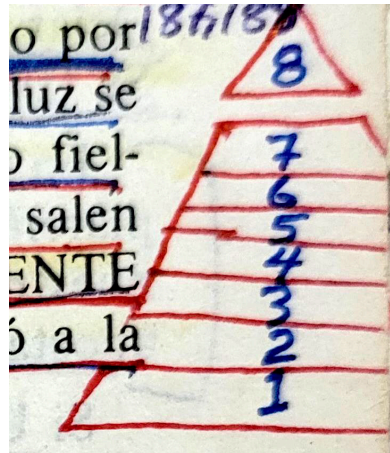 o por
luz se
o fiel-
salen
ENTE
ó a la
8
7
6
5
4
3
2
1